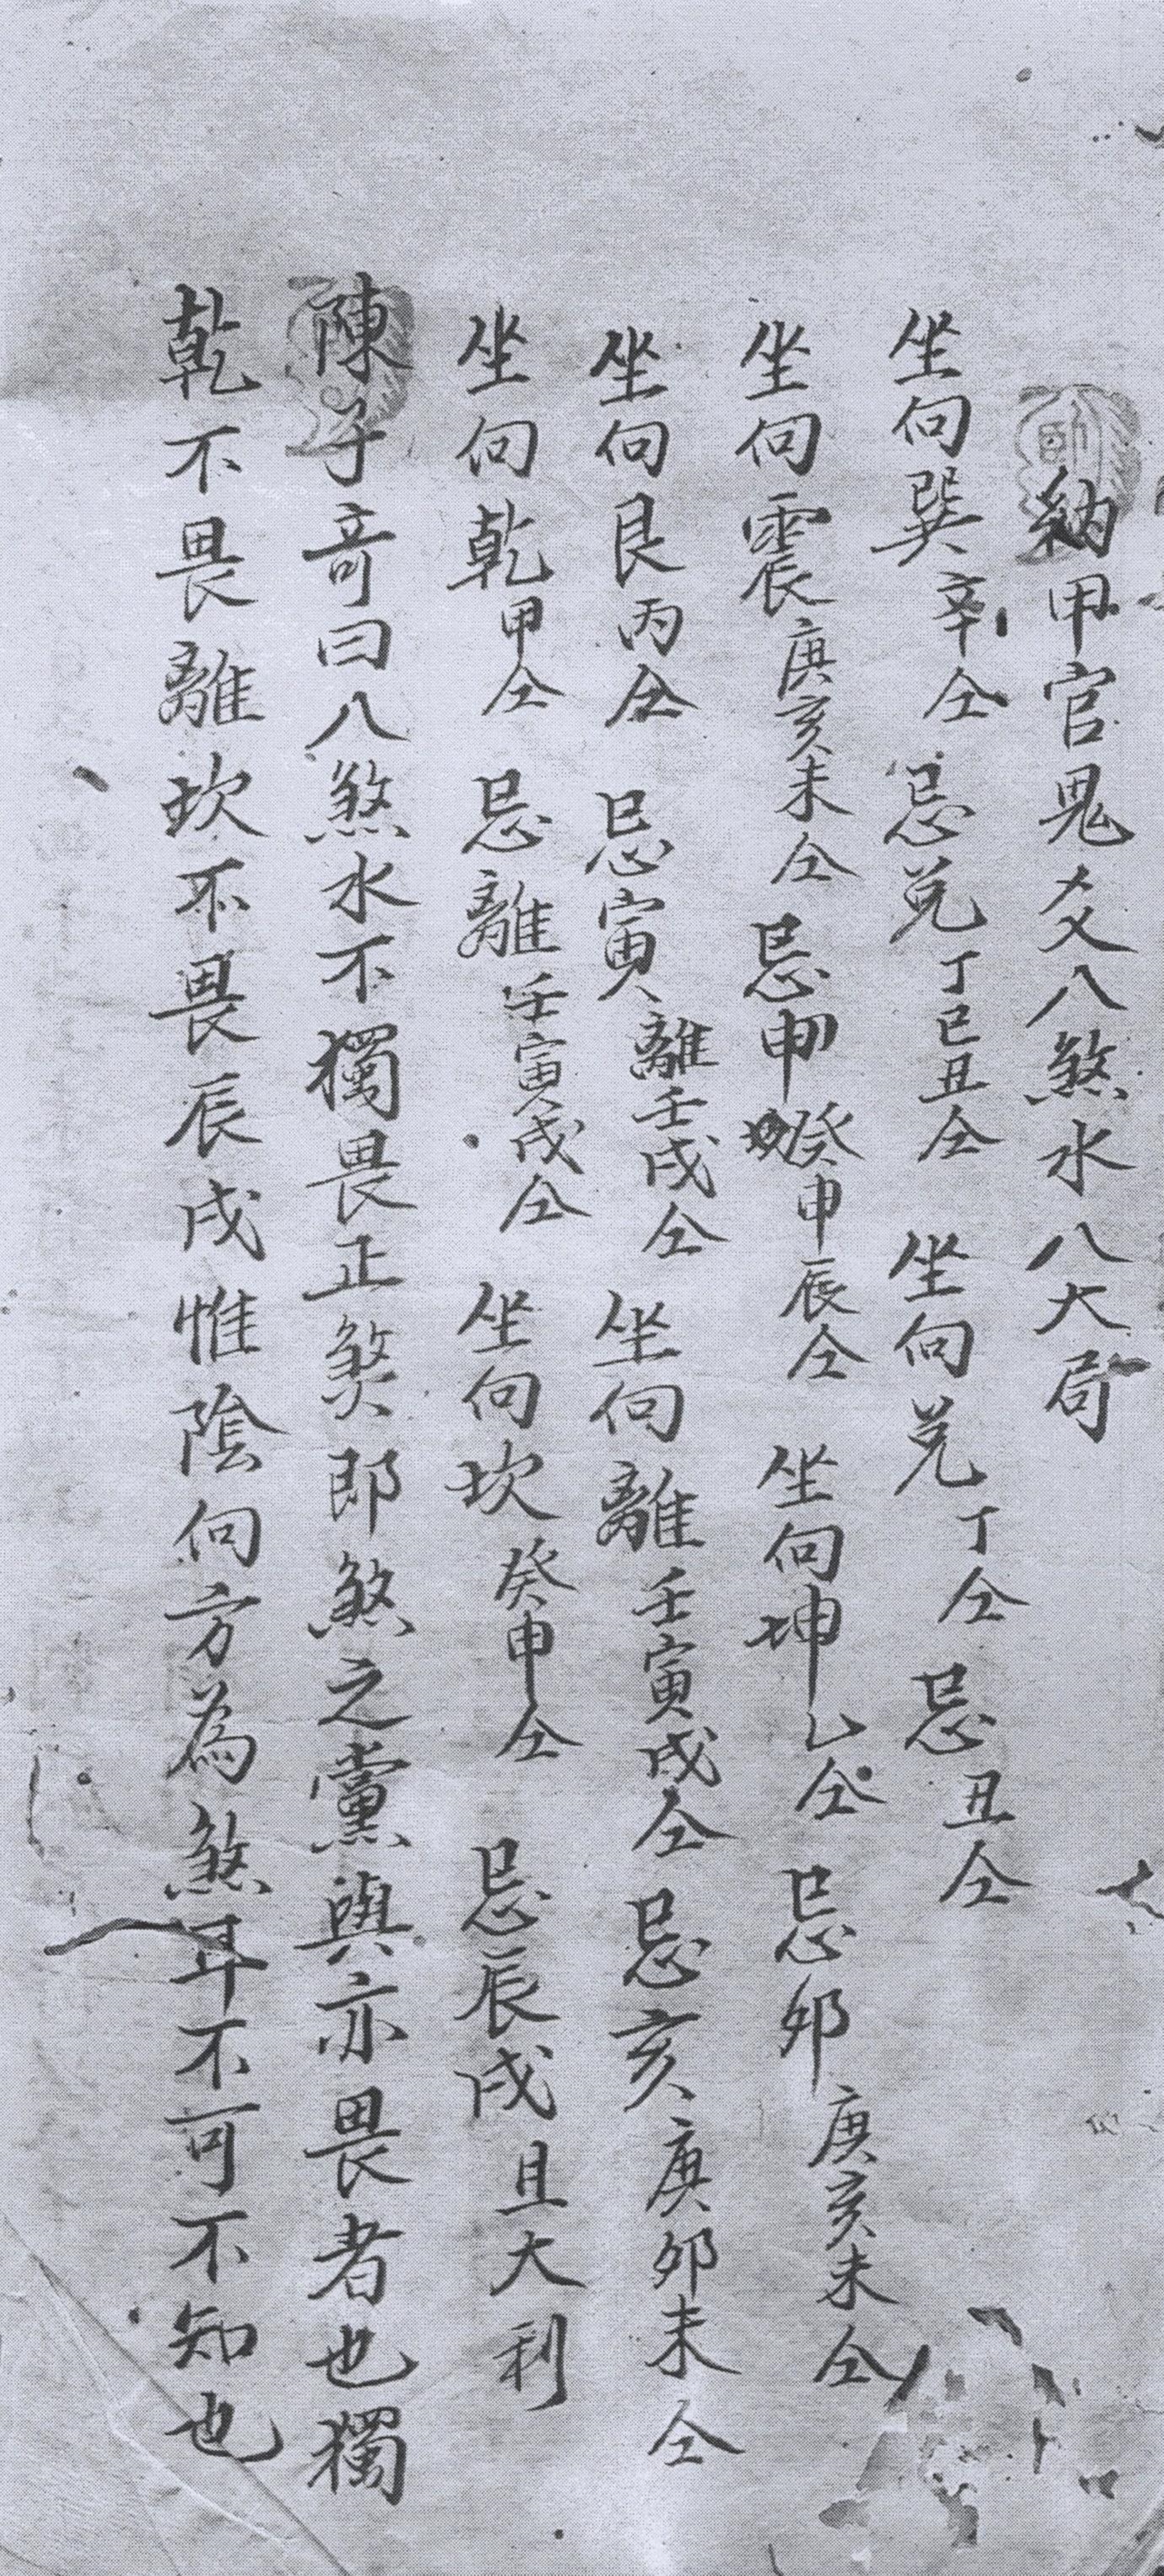 納甲官鬼爻八煞水八大局
坐向巽辛仝 忌兌丁巳丑仝 坐向兌丁仝 忌丑仝
坐向震庚亥未仝 忌申癸申辰仝 坐向坤乙仝 忌卯庚亥未仝
坐向艮丙仝 忌寅離壬戌仝 坐向離壬寅戌仝 忌亥庚卯未仝
坐向乾甲仝 忌離壬寅戌仝 坐向坎癸申仝 忌辰戌且大利
陳子竒曰八煞水不獨畏正煞即煞之黨與亦畏者也獨
乾不畏離坎不畏辰戌惟陰向方為煞耳不可不知也